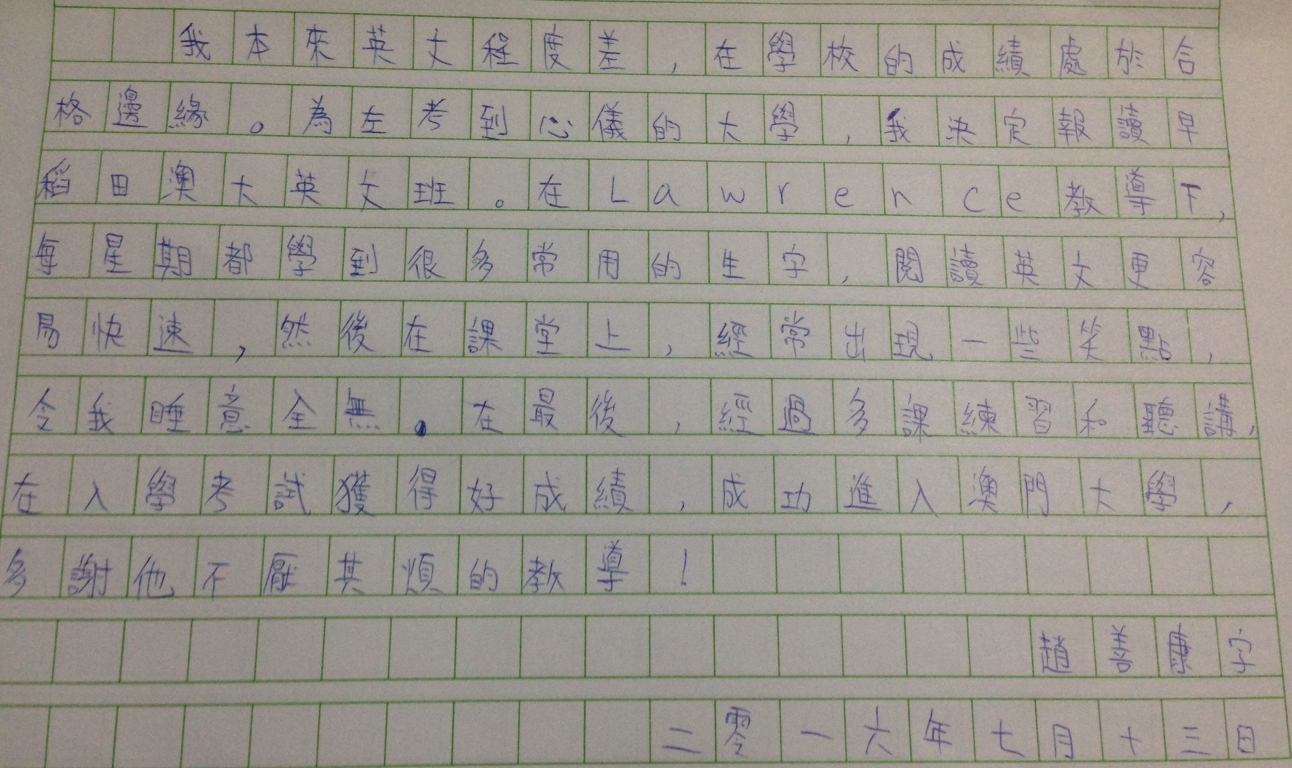 我本來英文程度差，在學校的成績處於合
格邊緣。為左考到心儀的大學，我決定報讀早
稻田澳大英文班。在Lawrence教導下，
每星期都學到很多常用的生字，閱讀英文更容
易快速，然後在課堂上，經常出現一些笑點，
令我睡意全無。在最後，經過多課練習和聽講，
在入學考試獲得好成績，成功進入澳門大學，
多謝他不厭其煩的教導！
趙善康字
二零一六年七月十三日